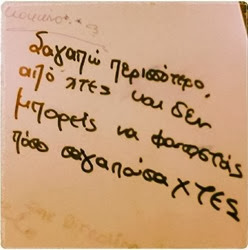 Σαγαπώ περισσότερο,
από χτες και δεν
μπορείς να φανταστείς
πόσο σαγαπούσα ΧΤΕΣ